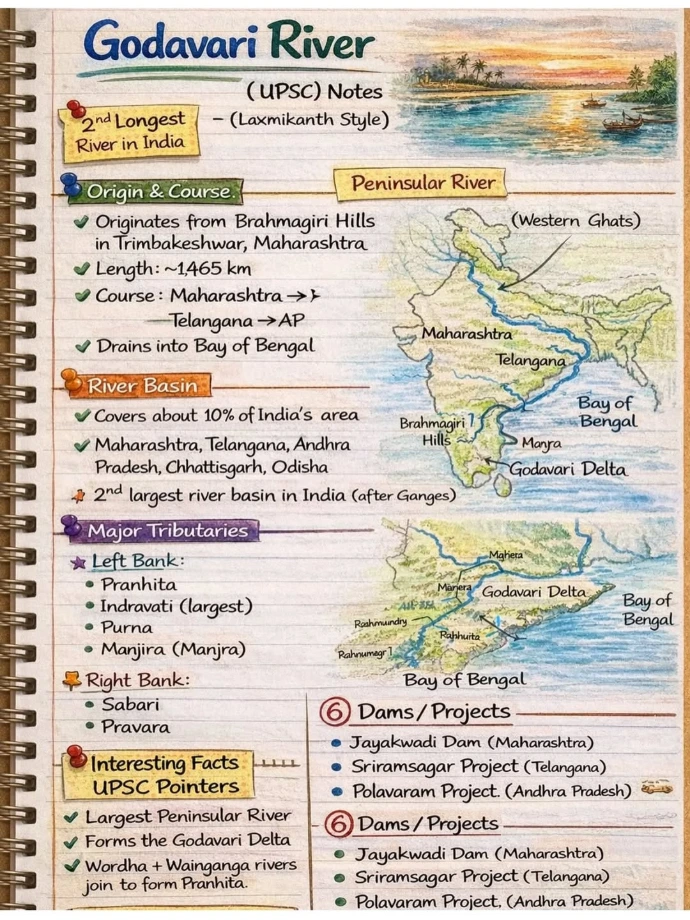 Godavari River
(UPSC) Notes
2nd Longest
River in India
– (Laxmikanth Style)
Origin & Course.
Peninsular River
✔ Originates from Brahmagiri Hills
in Trimbakeshwar, Maharashtra
✔ Length: ~1,465 km
✔ Course: Maharashtra →
Telangana → AP
✔ Drains into Bay of Bengal
(Western Ghats)
Maharashtra
Telangana
Bay of
Bengal
Brahmagiri
Hills
Manjra
Godavari Delta
River Basin
✔ Covers about 10% of India's area
✔ Maharashtra, Telangana, Andhra
Pradesh, Chhattisgarh, Odisha
2nd largest river basin in India (after Ganges)
Major Tributaries
★ Left Bank:
• Pranhita
• Indravati (largest)
• Purna
• Manjira (Manjra)
Right Bank:
• Sabari
• Pravara
Mahera
Manera
Godavari Delta
Bay of
Bengal
Raahmundry
Rahhuita
Bay of Bengal
Interesting Facts
UPSC Pointers
✔ Largest Peninsular River
✔ Forms the Godavari Delta
✔ Wordha + Wainganga rivers
join to form Pranhita.
6 Dams / Projects
• Jayakwadi Dam (Maharashtra)
• Sriramsagar Project (Telangana)
• Polavaram Project. (Andhra Pradesh)
6 Dams / Projects
• Jayakwadi Dam (Maharashtra)
• Sriramsagar Project (Telangana)
• Polavaram Project, (Andhra Pradesh)